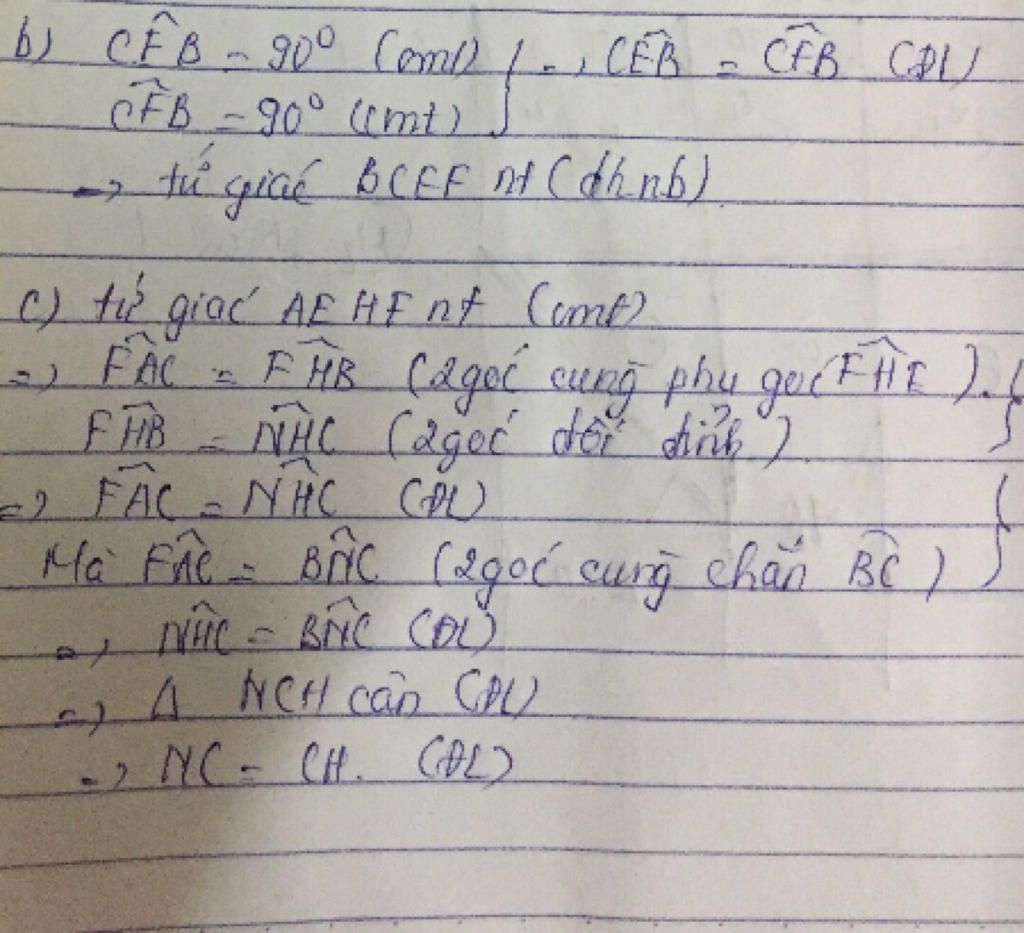 b) CÊB = 90° (cmt) } => CÊB = CF̂B (ĐL)
CF̂B = 90° (cmt)
=> tứ giác BCEF nt (dhnb)
c) tứ giác AEHF nt (cmt)
=> FÂC = FĤB (2 góc cùng phụ góc FĤE ). }
FĤB = NĤC (2 góc đối đỉnh)
=> FÂC = NĤC (ĐL) }
Mà FÂC = BN̂C (2 góc cùng chắn BC )
=> NĤC = BN̂C (ĐL)
=> Δ NCH cân (ĐL)
=> NC = CH. (ĐL)